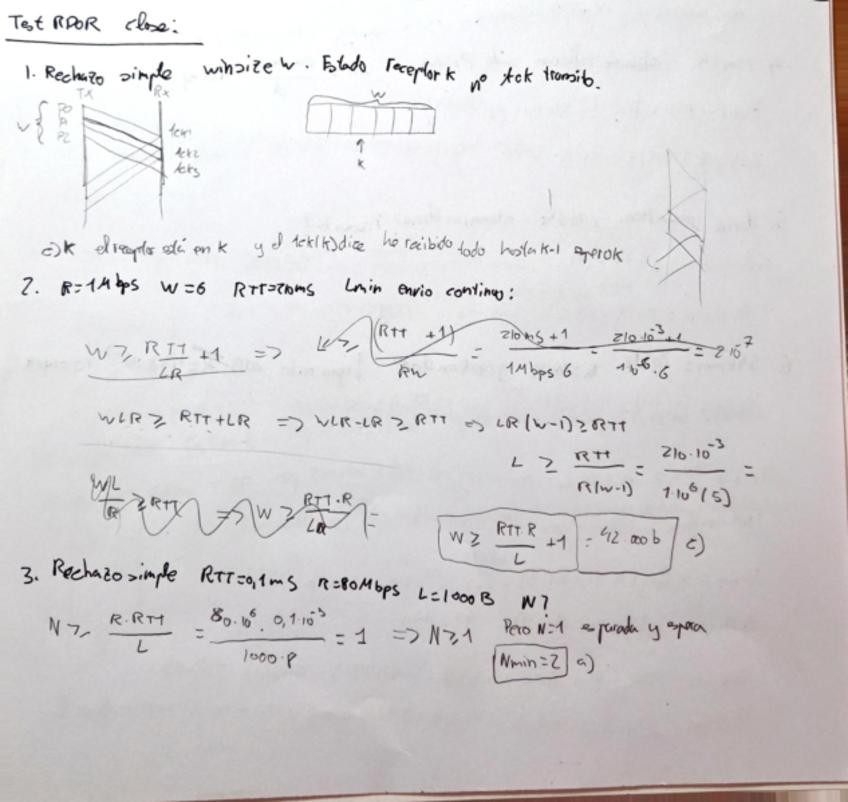 Test RDOR clase:
1. Rechazo simple winsize W. Estado receptor k nº Ack transito.
TX Rx W
W { P0 P1 P2
ack1
ack2
ack3
k
c) K el receptor está en k y el ack(k) dice he recibido todo hasta k-1 espero k
2. R=1Mbps W=6 RTT=210ms Lmin envio continuo:
W ≥ RTT/LR + 1 => L ≥ (RTT + 1)/RW = 210ms + 1/1Mbps·6 = 210·10^-3 + 1/10^-6·6 = 2·10^-7
WLR ≥ RTT + LR => WLR-LR ≥ RTT => LR(W-1) ≥ RTT
L ≥ RTT/R(W-1) = 210·10^-3/1·10^6(5) =
WL/R ≥ RTT => W ≥ RTT·R/LR =
W ≥ RTT·R/L + 1 = 42.000b c)
3. Rechazo simple RTT=0,1ms R=80Mbps L=1000B N?
N ≥ R·RTT/L = 80·10^6·0,1·10^-3/1000·8 = 1 => N ≥ 1 Pero N=1 es parada y espera
Nmin=2 a)